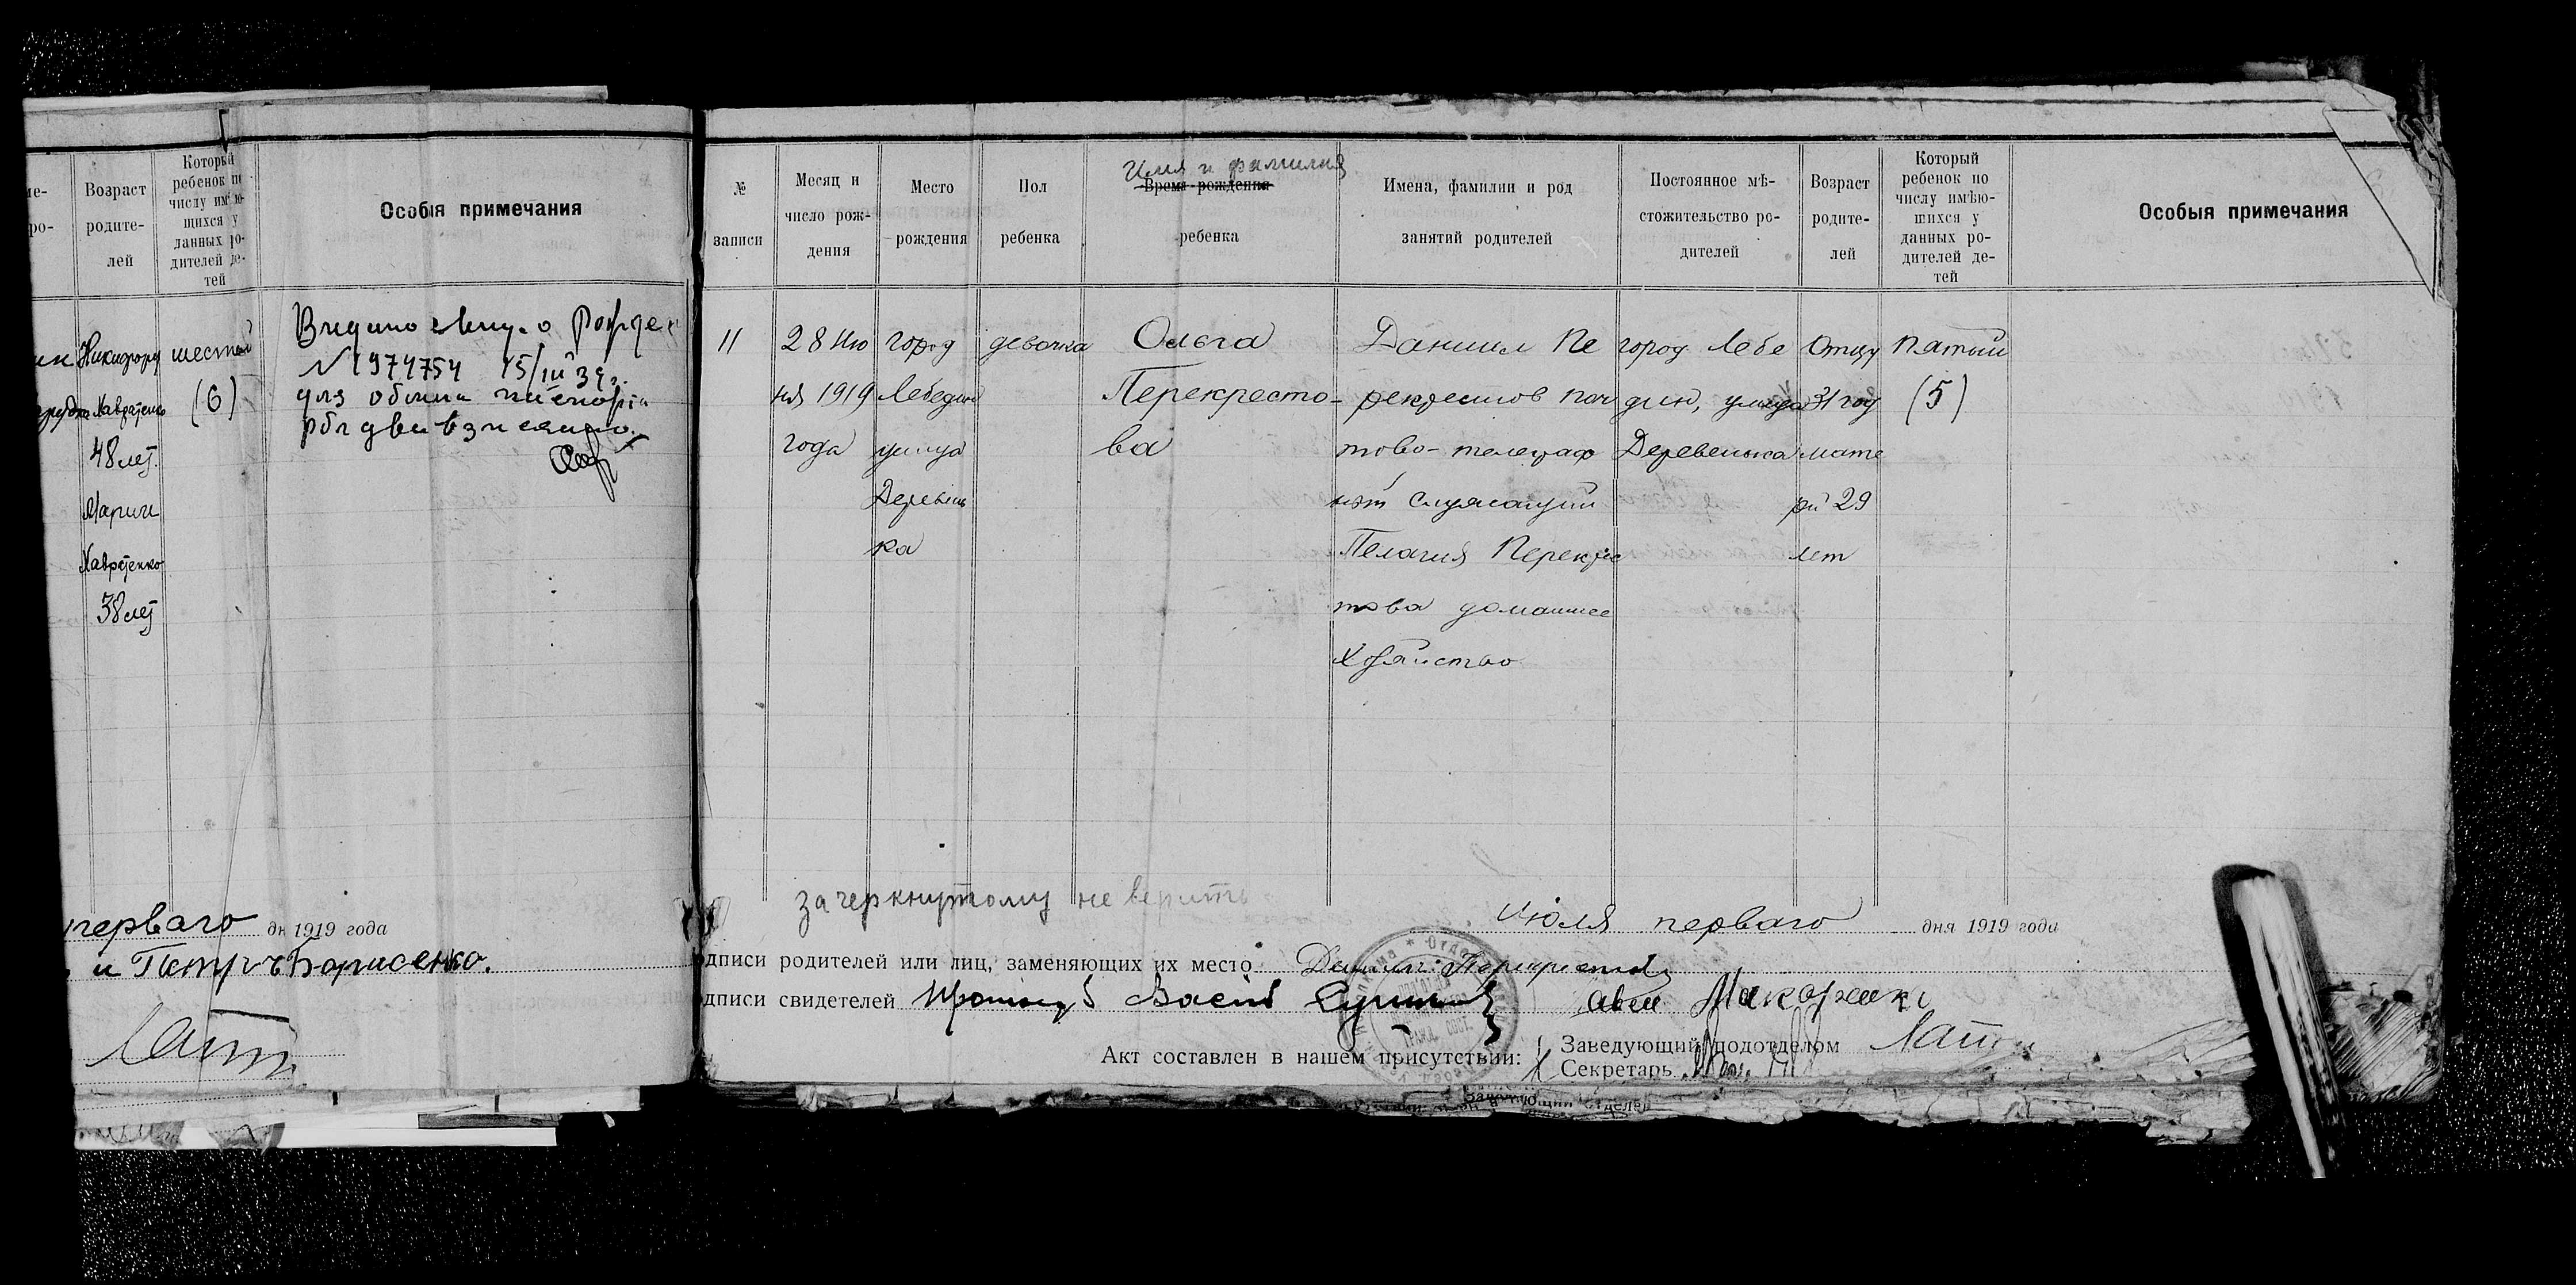 Возраст
родите-
лей
Который
ребенок по
числу имею-
щихся у
данных ро-
дителей де-
тей
Особыя примечания
Никифору
Хавратенко
48 лет.
Марии
Хавратенко
38 лет
шестой
(6)
N 1974754 15/III
первого дн 1919 года
и Петръ Борисенко.
№
записи
Месяц и
число рож-
дения
Место
рождения
Пол
ребенка
Имя и фамилия
Время рождения
ребенка
Имена, фамилии и род
занятий родителей
Постоянное мѣ-
стожительство ро-
дителей
Возраст
родите-
лей
Который
ребенок по
числу имѣю-
щихся у
данных ро-
дителей де-
тей
Особыя примечания
11
28 Ию
ня 1919
года
город
Лебедин
улица
Деревень
ка
девочка
Ольга
Перекресто-
ва
Даниил Пе
рекрестов поч
тово-телеграф
ный служащий
Пелагия Перекрес
това домашнее
хозяйство
город Лебе
дин, улица
Деревенька
Отцу
31 год
мате
ри 29
лет
Пятый
(5)
зачеркнутому не верить
Июля первого дня 1919 года
дписи родителей или лиц, заменяющих их место Даниил Перекрестов
дписи свидетелей
Акт составлен в нашем присутствии:
Заведующий подотделом
Секретарь